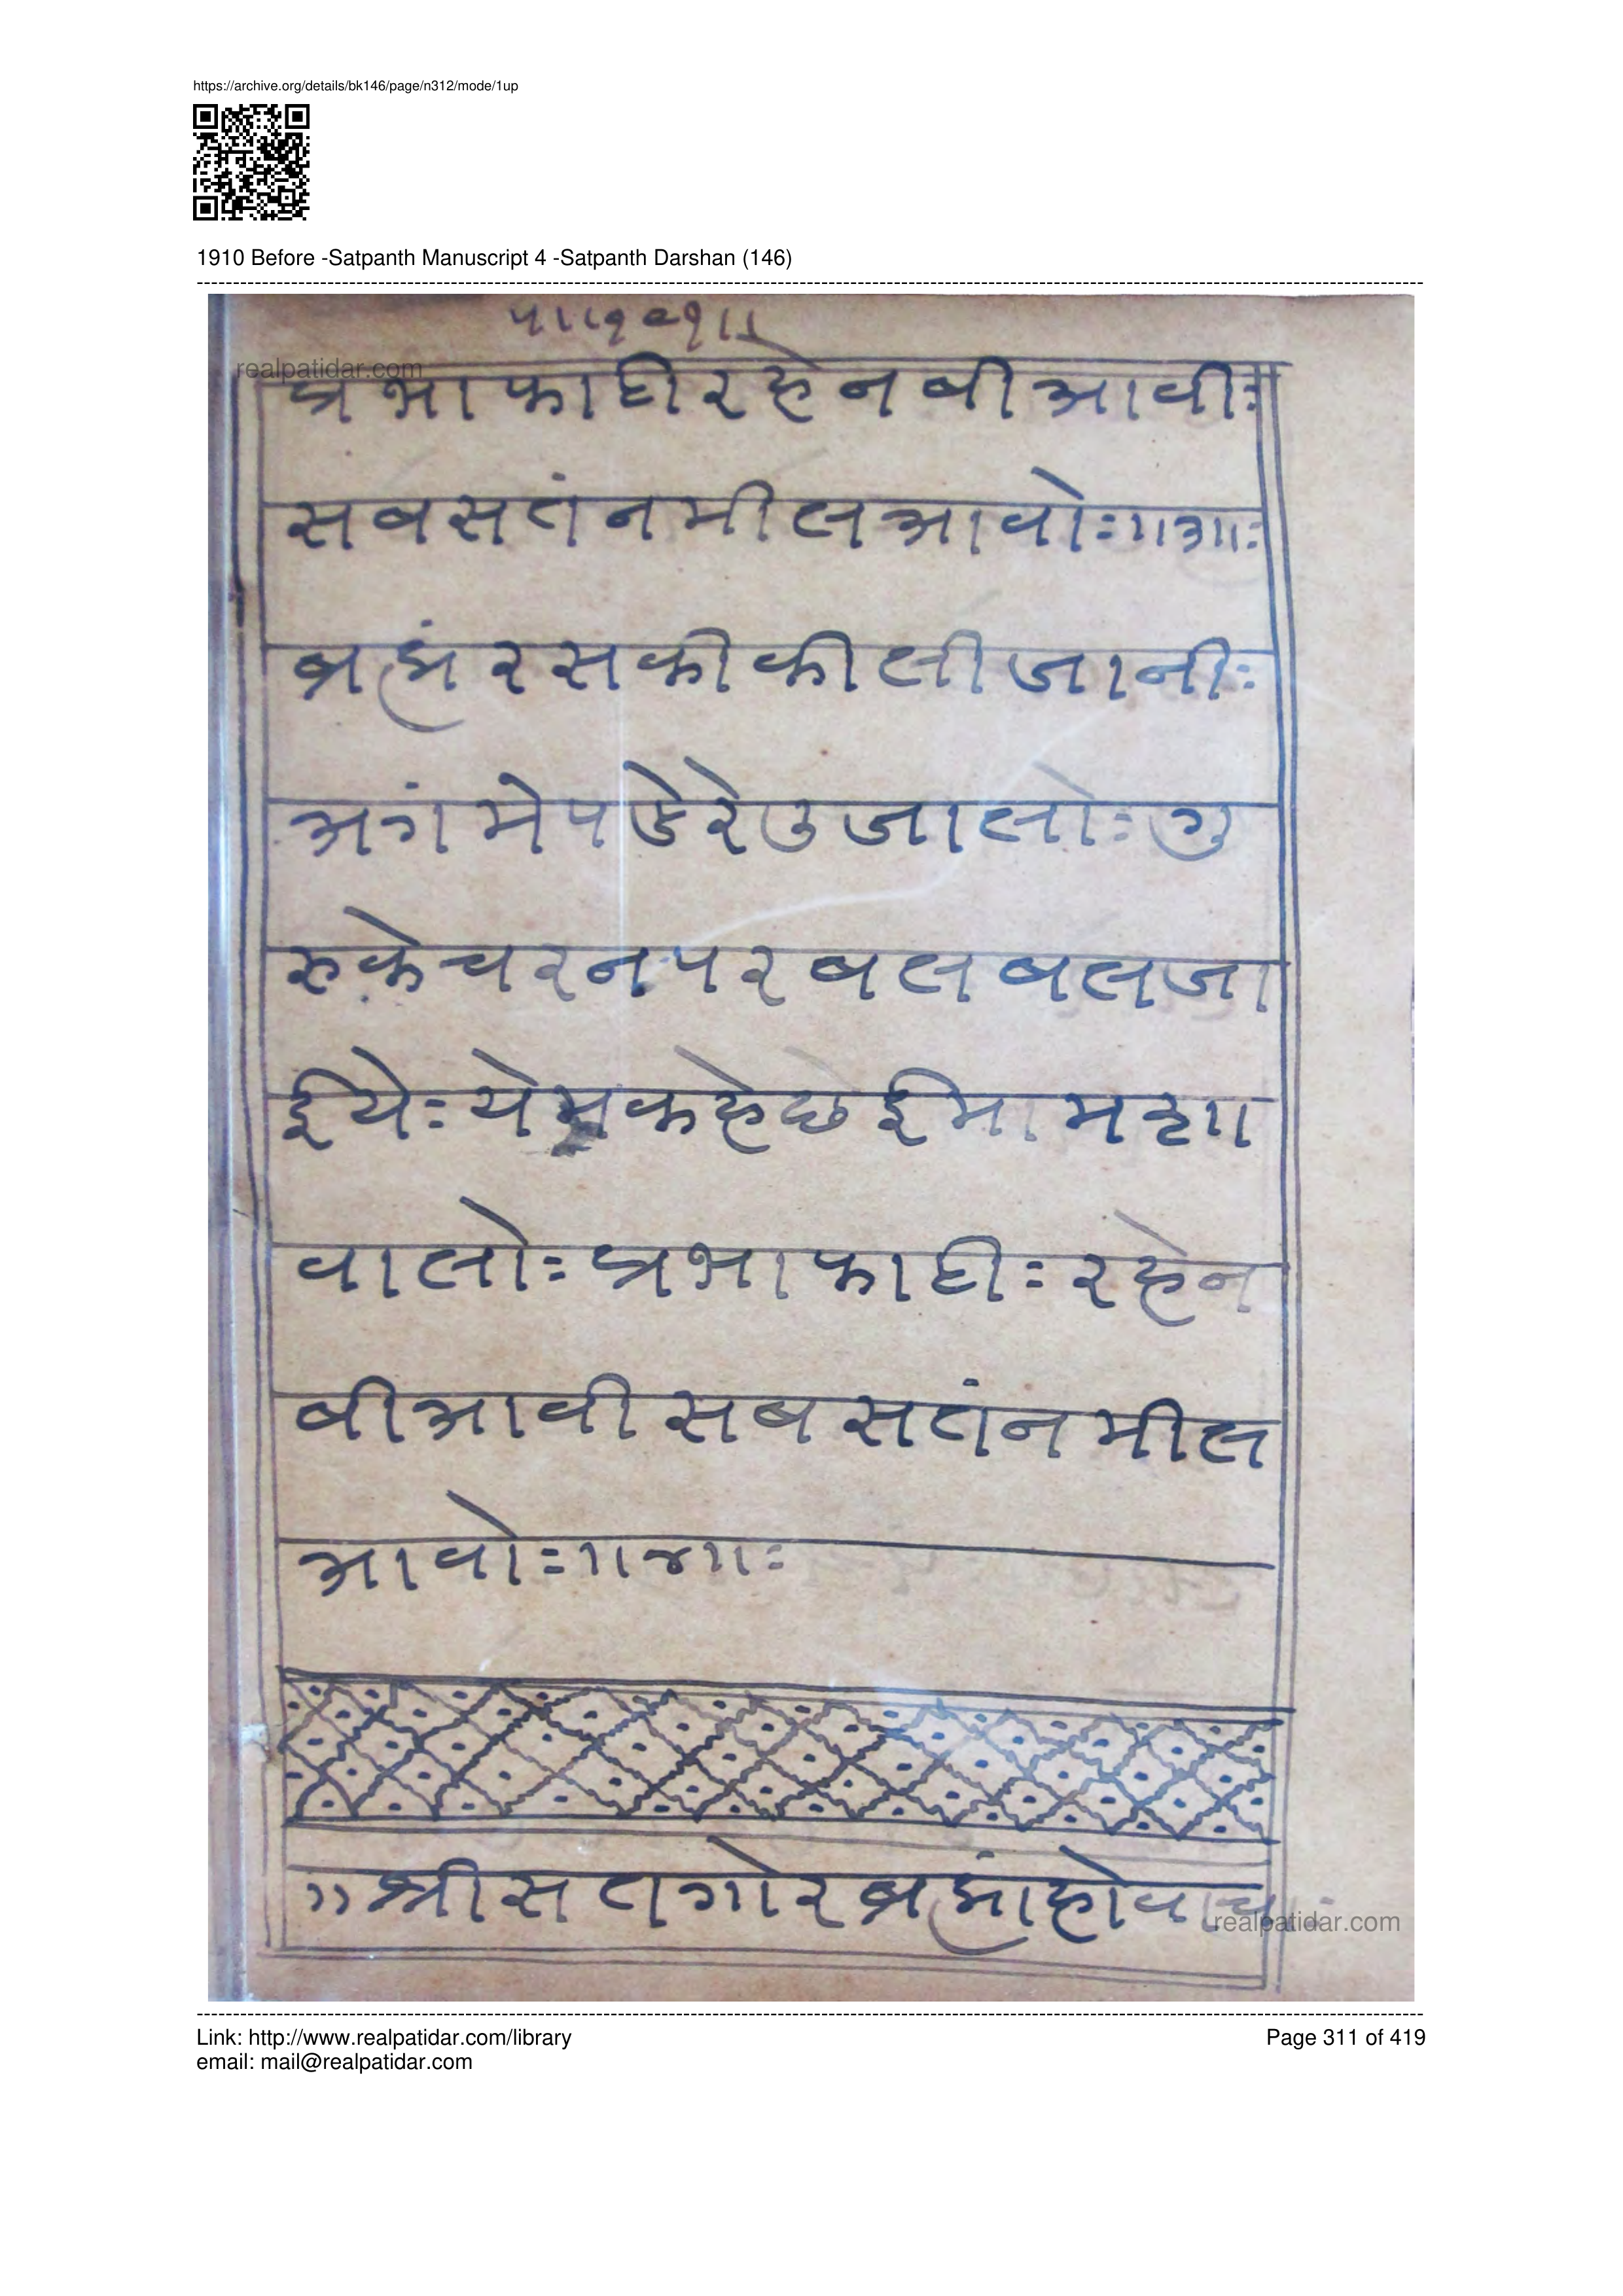 https://archive.org/details/bk146/page/n312/mode/1up
1910 Before -Satpanth Manuscript 4 -Satpanth Darshan (146)
realpatidar.com
प्रभाफाटी रहेन बी आवीः
सबसतंन मील आवोः॥३॥ः
ब्रह्मं रस की कीली जानीः
अगं मे पडे रे उजालोः गु
रुके चरन पर बल बल जा
ईयेः येम कहे छे ईमामशा
वालोः प्रभाफाटीः रहेन
बी आवी सब सतंन मील
आवोः॥४॥ः
॥श्री सतगोर ब्रह्मांहोवाच
realpatidar.com
Link: http://www.realpatidar.com/library
Page 311 of 419
email: mail@realpatidar.com